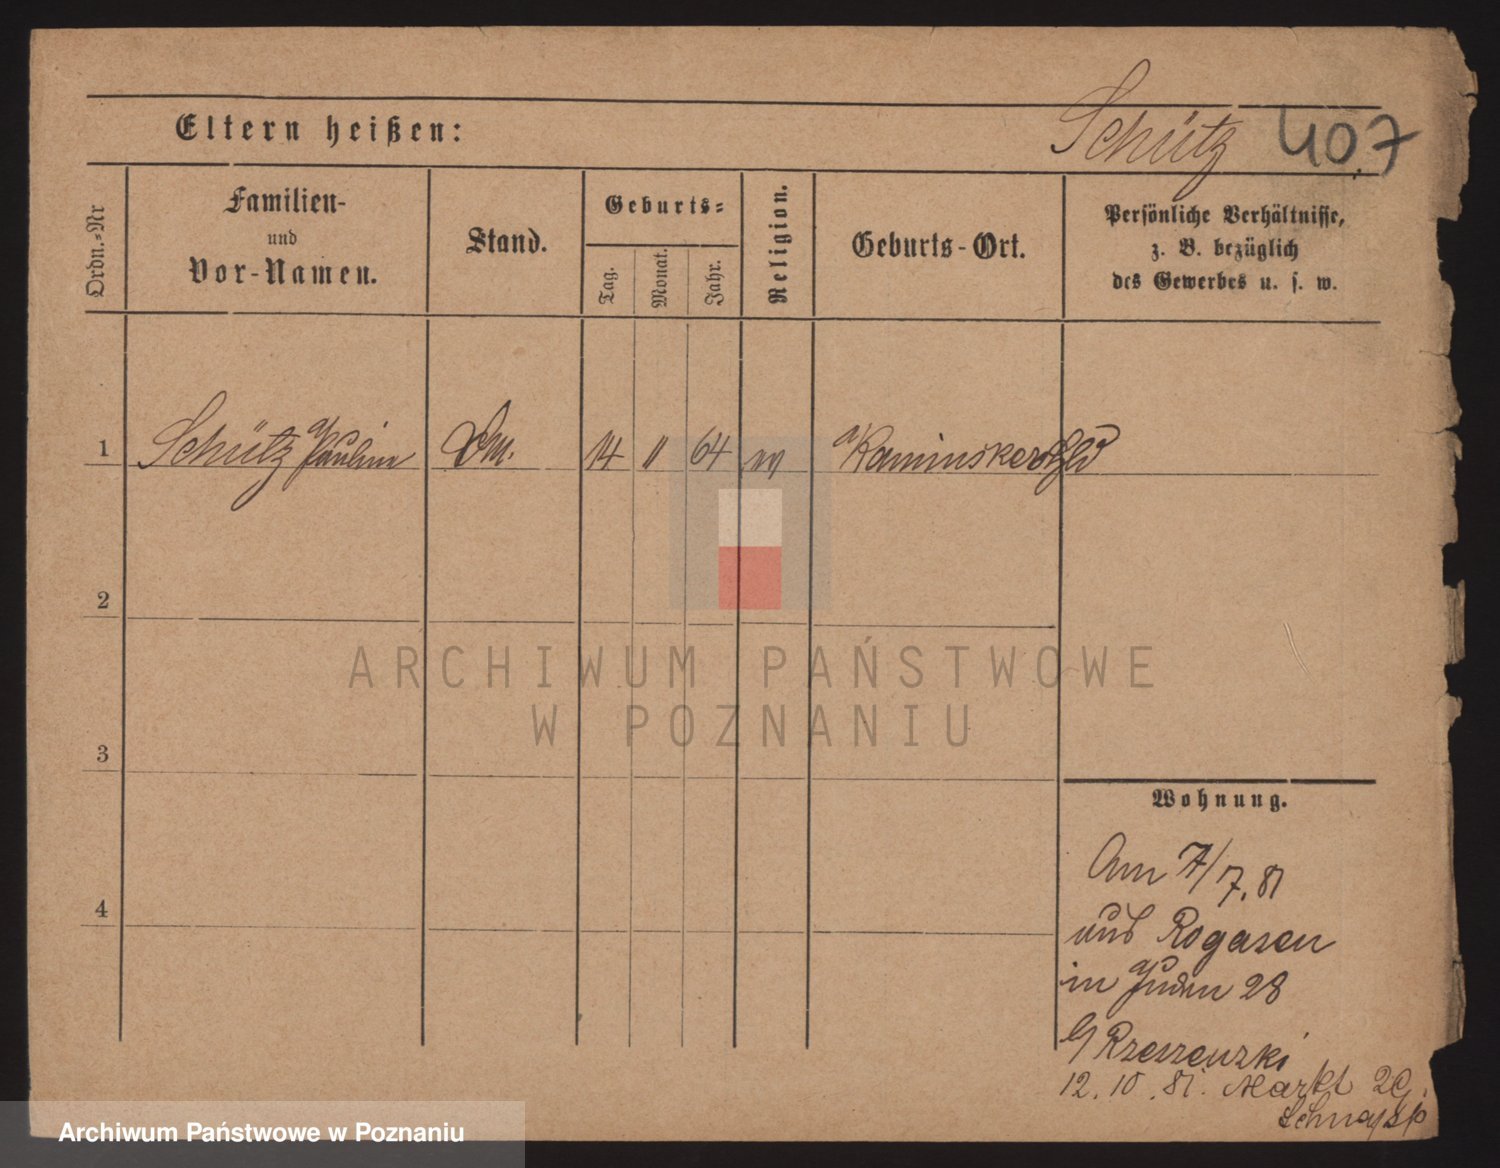 Schütz 407
Eltern heißen:
Ordn.-Nr
Familien-
und
Vor-Namen.
Stand.
Geburts-
Tag.
Monat.
Jahr.
Religion.
Geburts-Ort.
Persönliche Verhältnisse,
z. B. bezüglich
des Gewerbes u. s. w.
1 Schütz Pauline 14 11 64
2
3
4
ARCHIWUM PAŃSTWOWE
W POZNANIU
Wohnung.
Am 7/7.81
aus Rogasen
in Juden 28
12.10.81. Markt
Archiwum Państwowe w Poznaniu